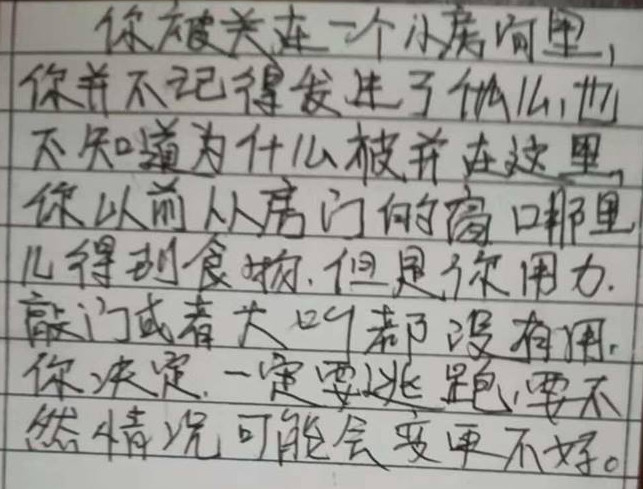 你被关在一个小房间里,
你并不记得发生了什么,也
不知道为什么被并在这里,
你以前从房门的窗口那里
儿得到食物.但是你用力.
敲门或者大叫都没有用.
你决定.一定要逃跑,要不
然情况可能会变更不好。